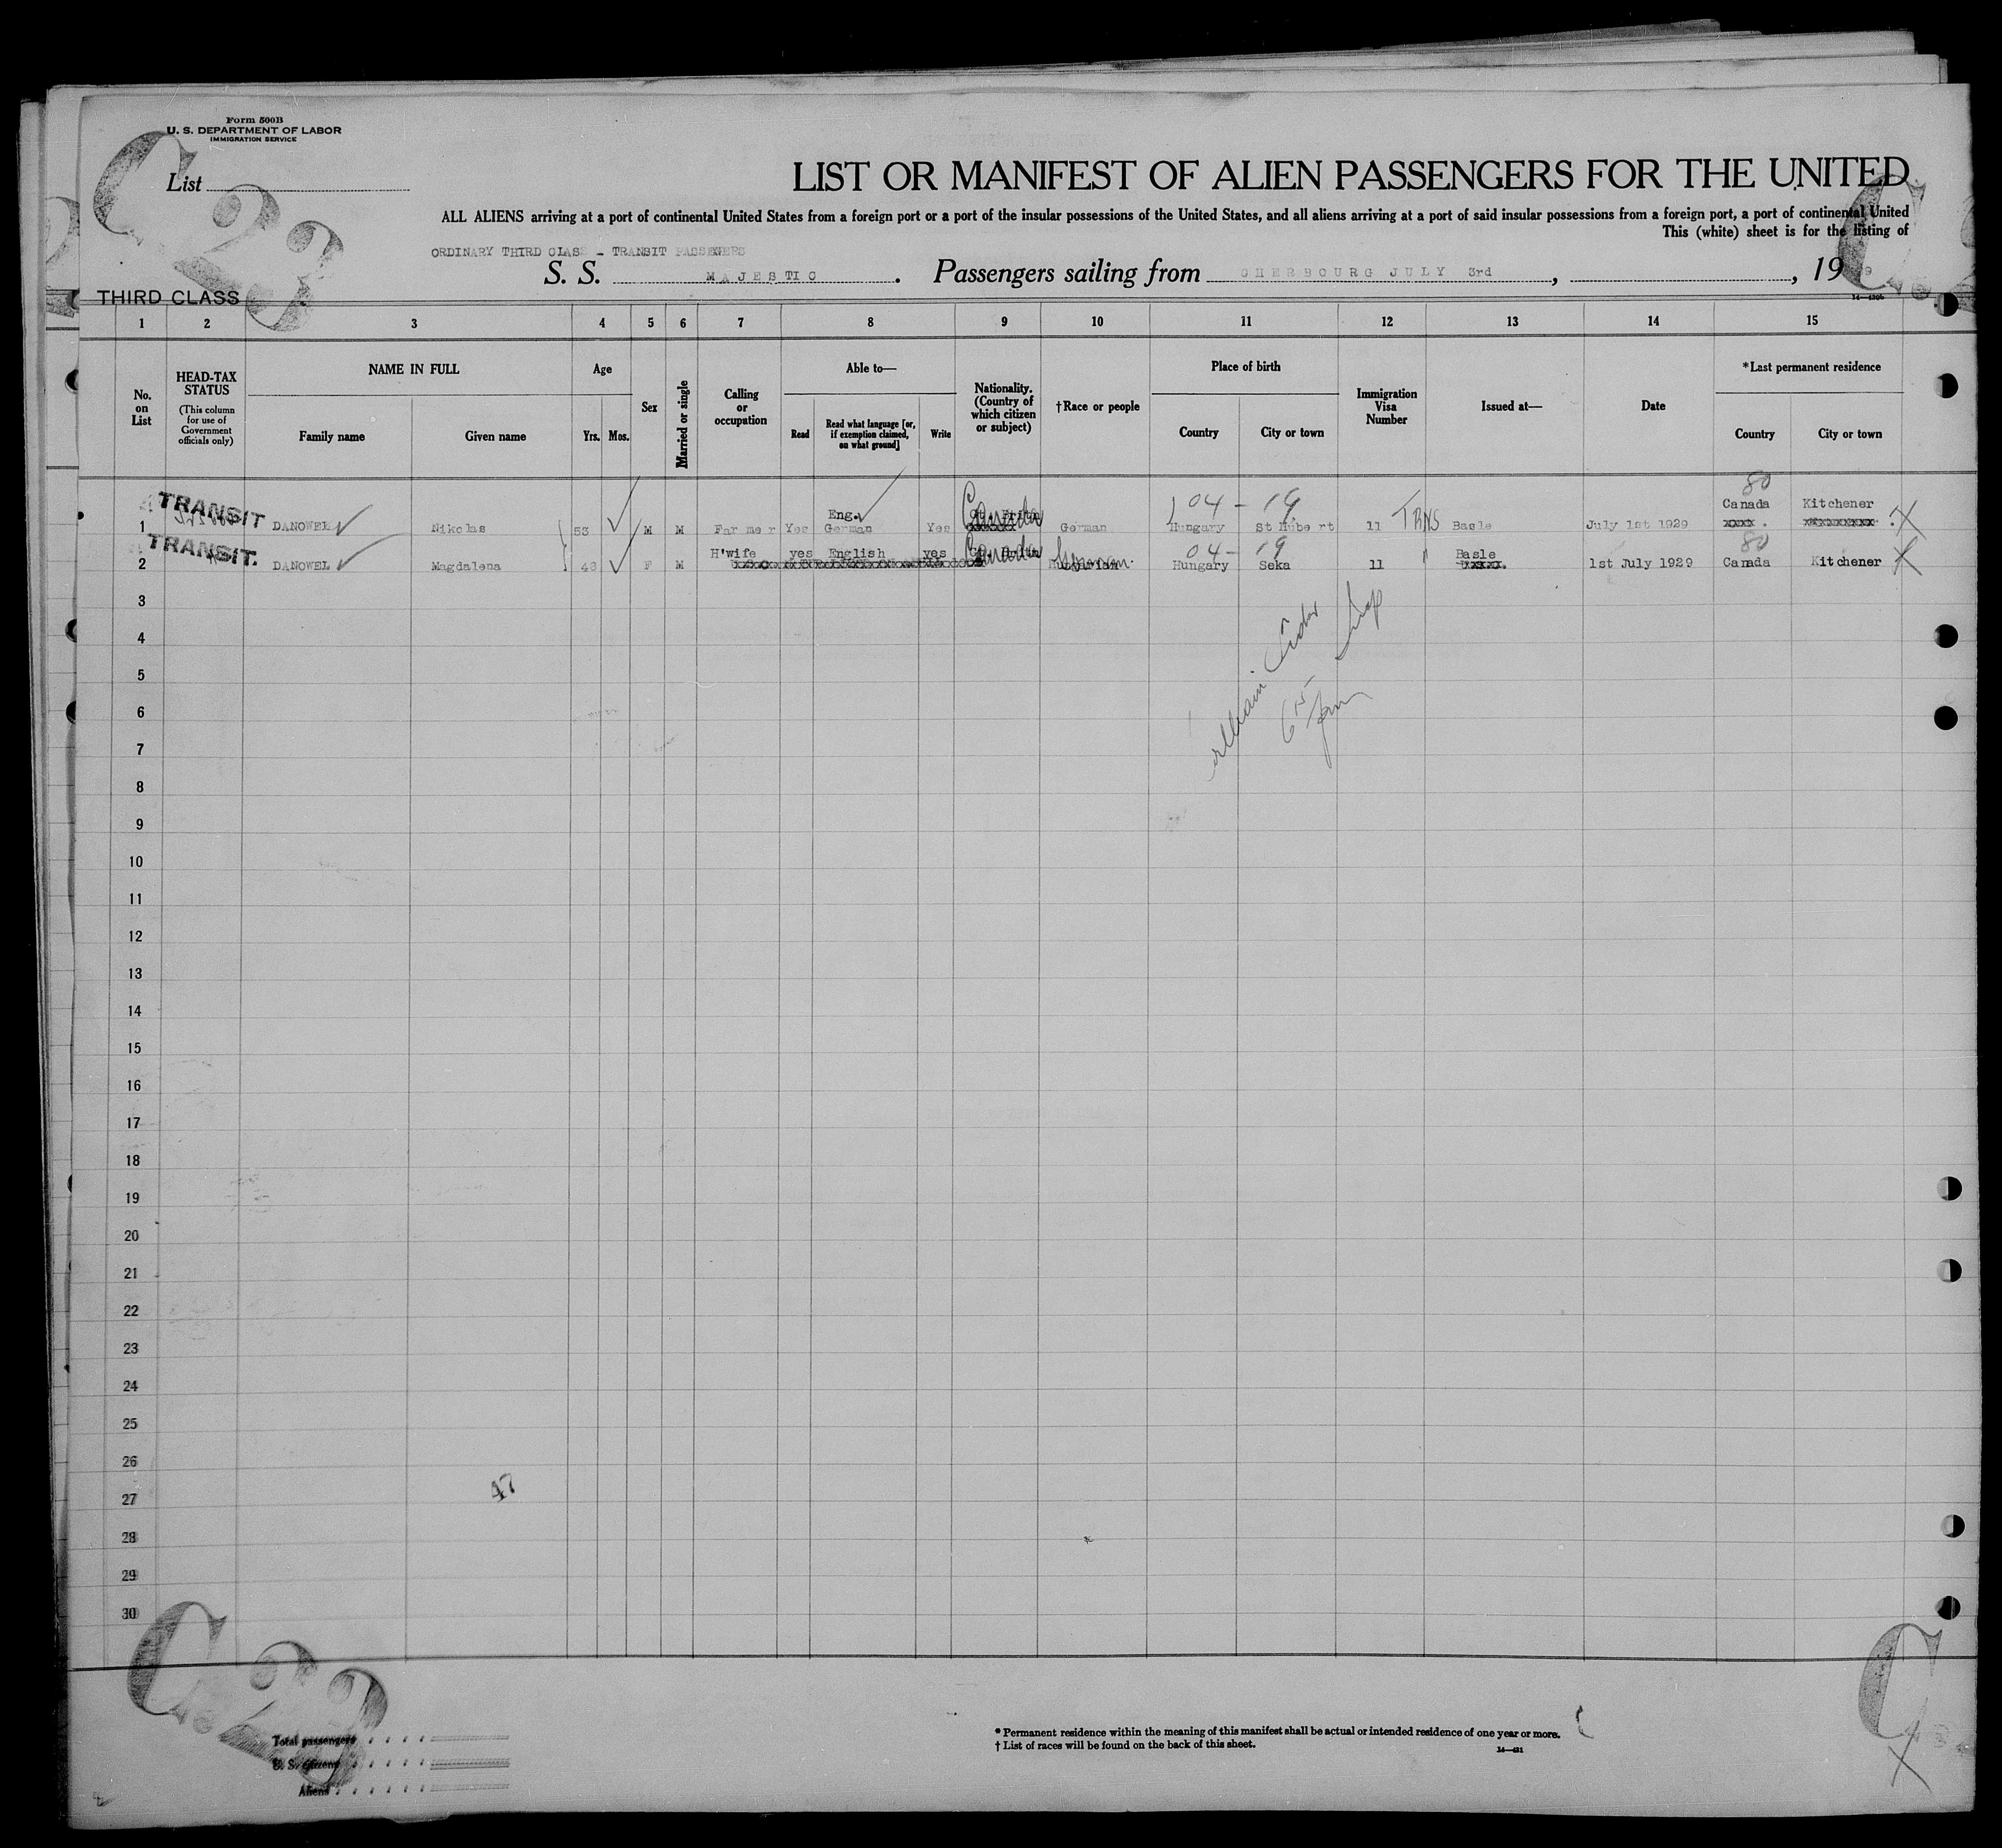 Form 500B
U. S. DEPARTMENT OF LABOR
IMMIGRATION SERVICE
C 23
List
LIST OR MANIFEST OF ALIEN PASSENGERS FOR THE UNITED
ALL ALIENS arriving at a port of continental United States from a foreign port or a port of the insular possessions of the United States, and all aliens arriving at a port of said insular possessions from a foreign port, a port of continental United
This (white) sheet is for the listing of
ORDINARY THIRD CLASS - TRANSIT PASSENGERS
S. S. MAJESTIC. Passengers sailing from CHERBOURG JULY 3rd, , 19
THIRD CLASS
1 2 3 4 5 6 7 8 9 10 11 12 13 14 15
No. on List
HEAD-TAX STATUS
(This column for use of Government officials only)
NAME IN FULL
Family name Given name
Age
Yrs. Mos.
Sex
Married or single
Calling or occupation
Able to—
Read
Read what language [or, if exemption claimed, on what ground]
Write
Nationality. (Country of which citizen or subject)
†Race or people
Place of birth
Country City or town
Immigration Visa Number
Issued at—
Date
*Last permanent residence
Country City or town
80
TRANSIT Eng. Canada 04 - 19 Canada Kitchener
1 DANOWEL Nikolas 53 M M Farmer Yes German Yes German Hungary St Hubert 11 TRNS Basle July 1st 1929 xxxx. xxxxxxxxx
TRANSIT. H'wife yes English yes Canada 04 - 19 Basle 80
2 DANOWEL Magdalena 43 F M Hungarian German Hungary Seka 11 1st July 1929 Canada Kitchener
3
4
5
6
7
8
9
10
11
12
13
14
15
16
17
18
19
20
21
22
23
24
25
26
27
28
29
30
6 15 pm
47
C 23
C
Total passengers
U. S. citizens
Aliens
* Permanent residence within the meaning of this manifest shall be actual or intended residence of one year or more.
† List of races will be found on the back of this sheet.
14—431